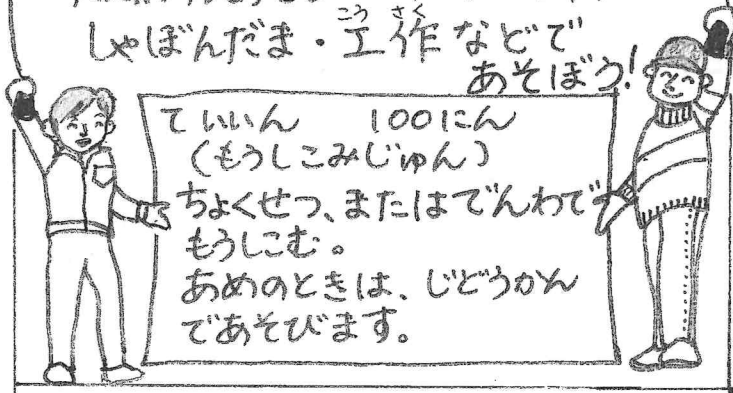 しゃぼんだま・工作などで
こうさく
あそぼう!
ていいん 100にん
(もうしこみじゅん)
ちょくせつ、またはでんわで
もうしこむ。
あめのときは、じどうかん
であそびます。